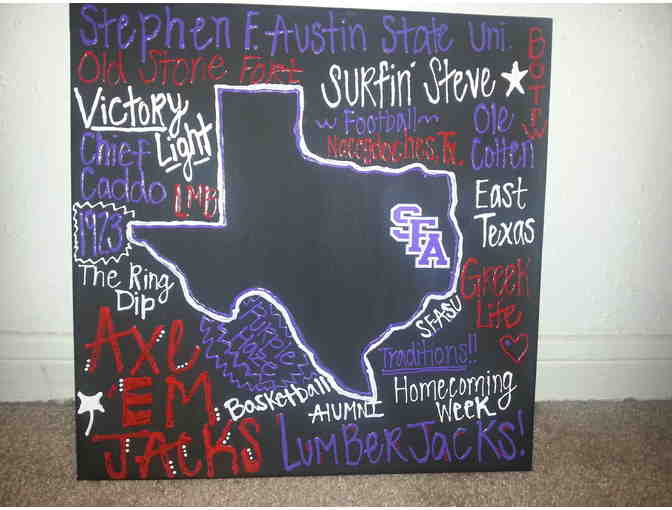 Stephen F. Austin State Uni.
Old Stone Fort
Surfin' Steve
BOTW
Victory
Light
Football
Ole
Cotten
Nacogdoches, Tx.
Chief
Caddo
LMB
1923
East
Texas
SFA
The Ring
Dip
Greek
Life
SFASU
Purple
Haze
Traditions!!
Axe
'EM
JACKS
Basketball
ALUMNI
Homecoming
Week
LumBerJacks!